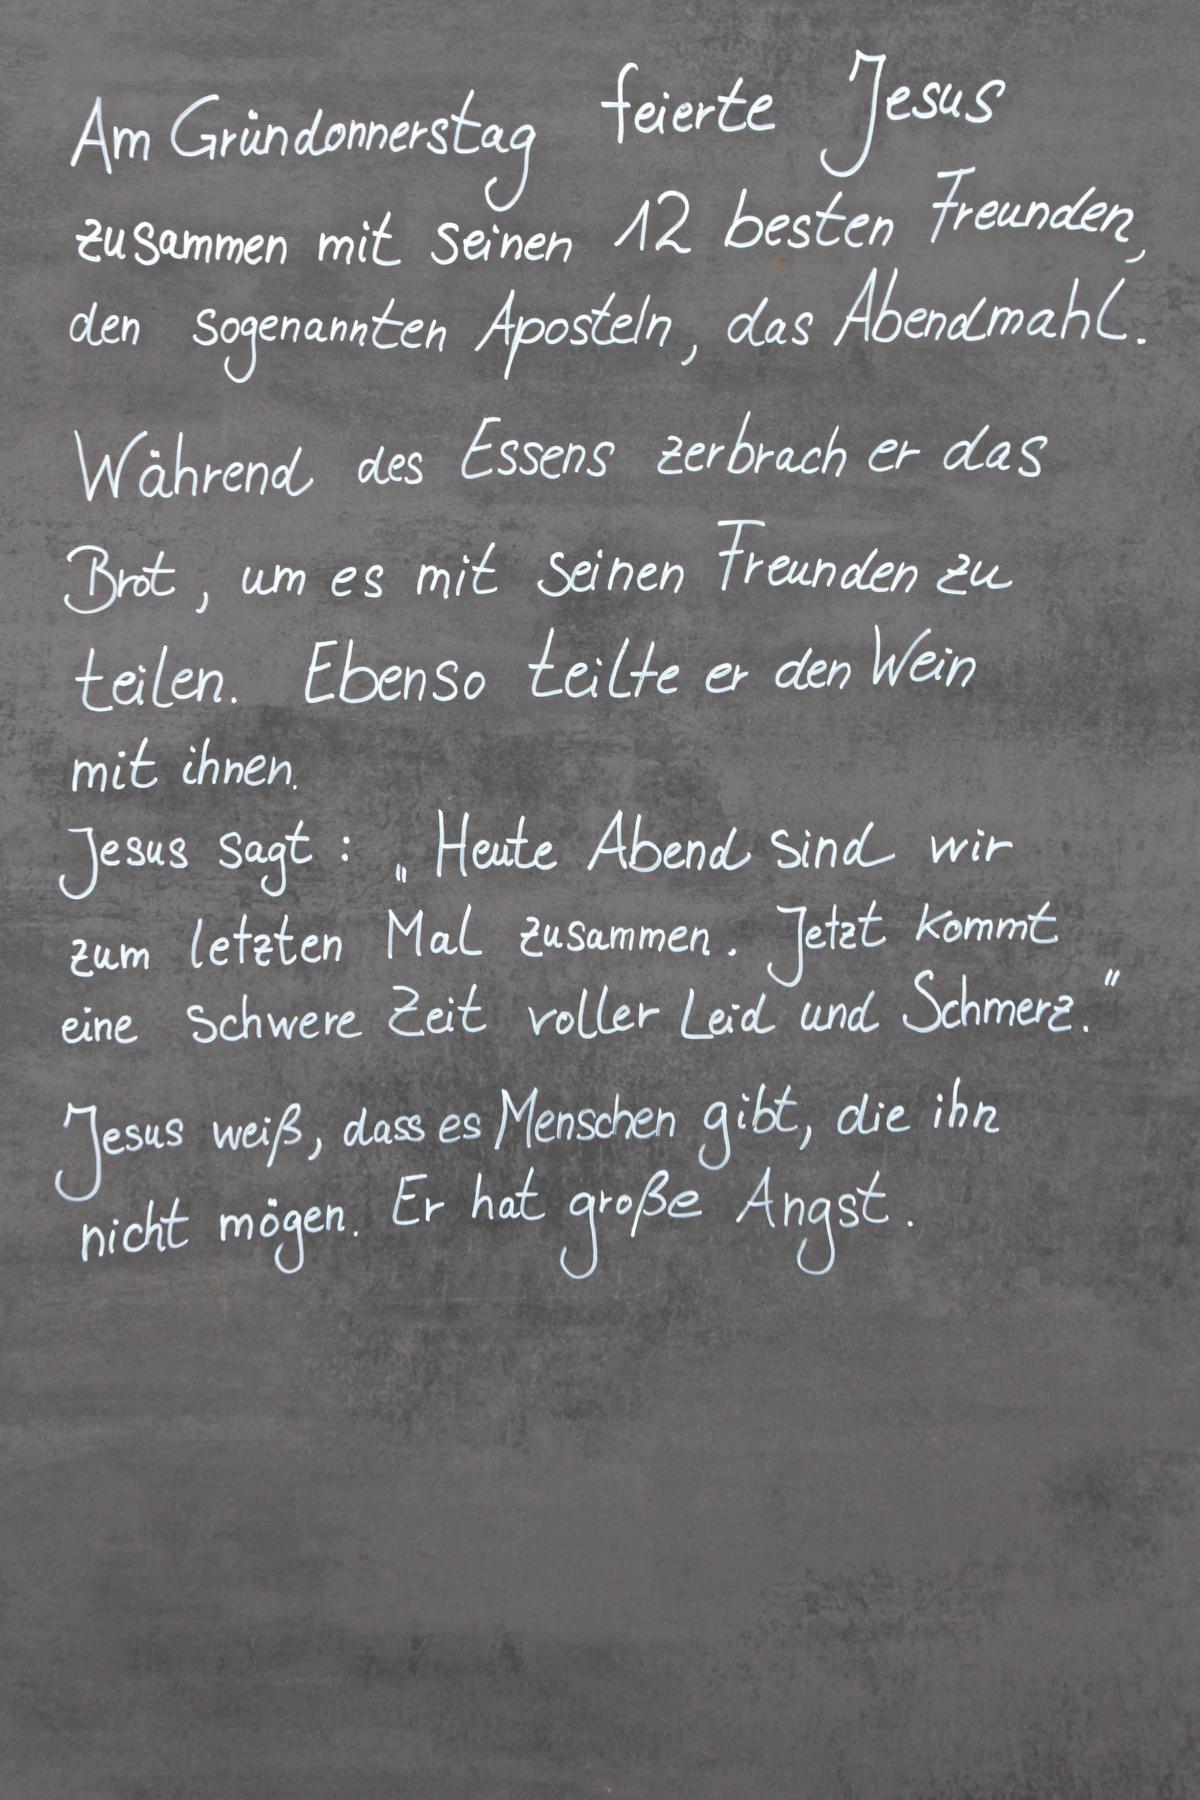 Am Gründonnerstag feierte Jesus
zusammen mit seinen 12 besten Freunden,
den sogenannten Aposteln, das Abendmahl.
Während des Essens zerbrach er das
Brot, um es mit seinen Freunden zu
teilen. Ebenso teilte er den Wein
mit ihnen.
Jesus sagt: „Heute Abend sind wir
zum letzten Mal zusammen. Jetzt kommt
eine schwere Zeit voller Leid und Schmerz."
Jesus weiß, dass es Menschen gibt, die ihn
nicht mögen. Er hat große Angst.